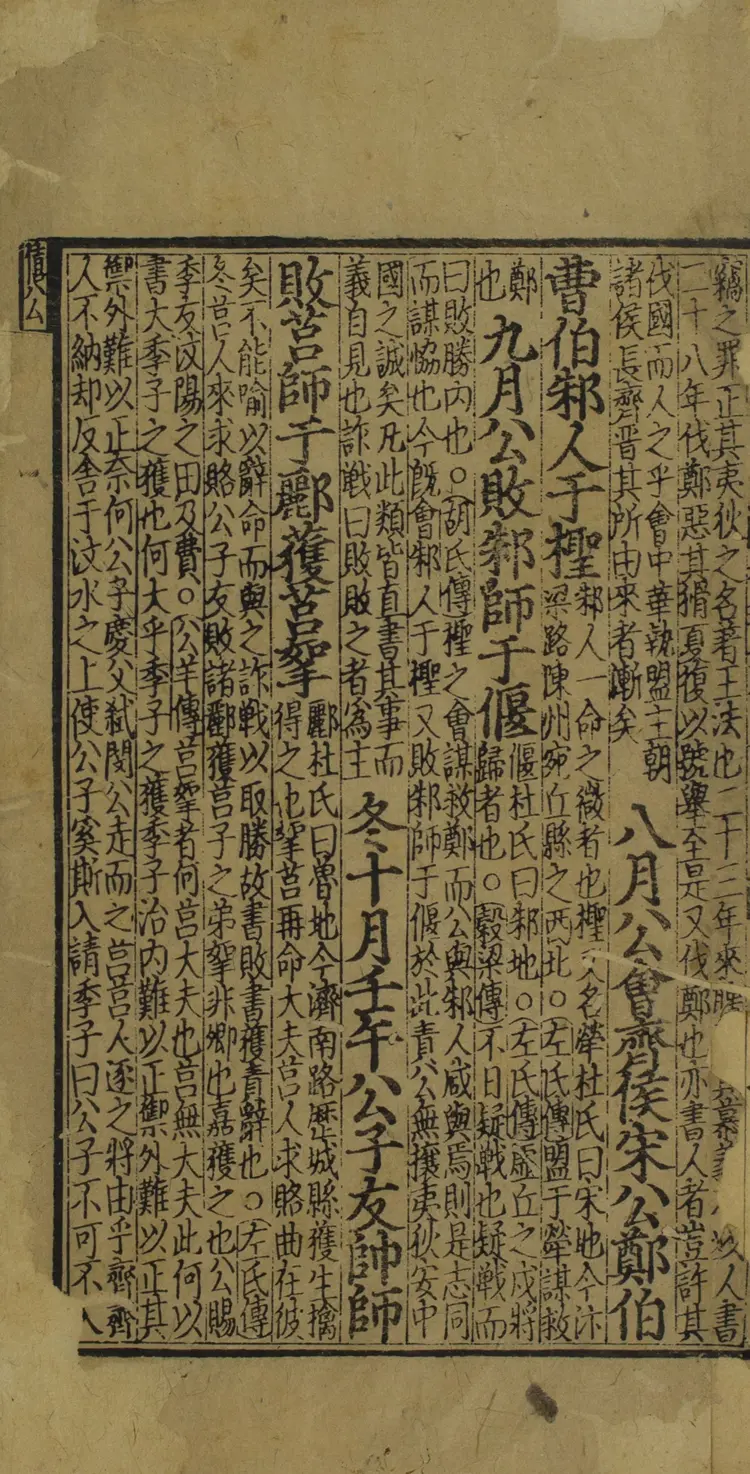 竊之罪正其夷狄之名著王法也二十三年來聘以人書
二十八年伐鄭惡其猾夏復以號舉至是又伐鄭也亦書人者豈許其
伐國而人之乎會中華執盟主朝
諸侯長齊晋其所由來者漸矣
八月公會齊侯宋公鄭伯
曹伯邾人于檉
邾人一命之微者也檉一名犖杜氏曰宋地今汴
梁路陳州宛丘縣之西北○左氏傳盟于犖謀救
鄭
也
九月公敗邾師于偃
偃杜氏曰邾地○左氏傳虛丘之戍將
歸者也○穀梁傳不日疑戰也疑戰而
曰敗勝內也○胡氏傳檉之會謀救鄭而公與邾人咸與焉則是志同
而謀恊也今旣會邾人于檉又敗邾師于偃於此責公無攘夷狄安中
國之誠矣凡此類皆直書其事而
義自見也詐戰曰敗敗之者為主
冬十月壬午公子友帥師
敗莒師于酈獲莒挐
酈杜氏曰魯地今濟南路歷城縣獲生擒
得之也挐莒再命大夫莒人求賂曲在彼
矣不能喻以辭命而與之詐戰以取勝故書敗書獲責辭也○左氏傳
冬莒人來求賂公子友敗諸酈獲莒子之弟挐非卿也嘉獲之也公賜
季友汶陽之田及費○公羊傳莒挐者何莒大夫也莒無大夫此何以
書大季子之獲也何大乎季子之獲季子治內難以正禦外難以正其
禦外難以正奈何公子慶父弑閔公走而之莒莒人逐之將由乎齊齊
人不納却反舍于汶水之上使公子奚斯入請季子曰公子不可不入
僖公